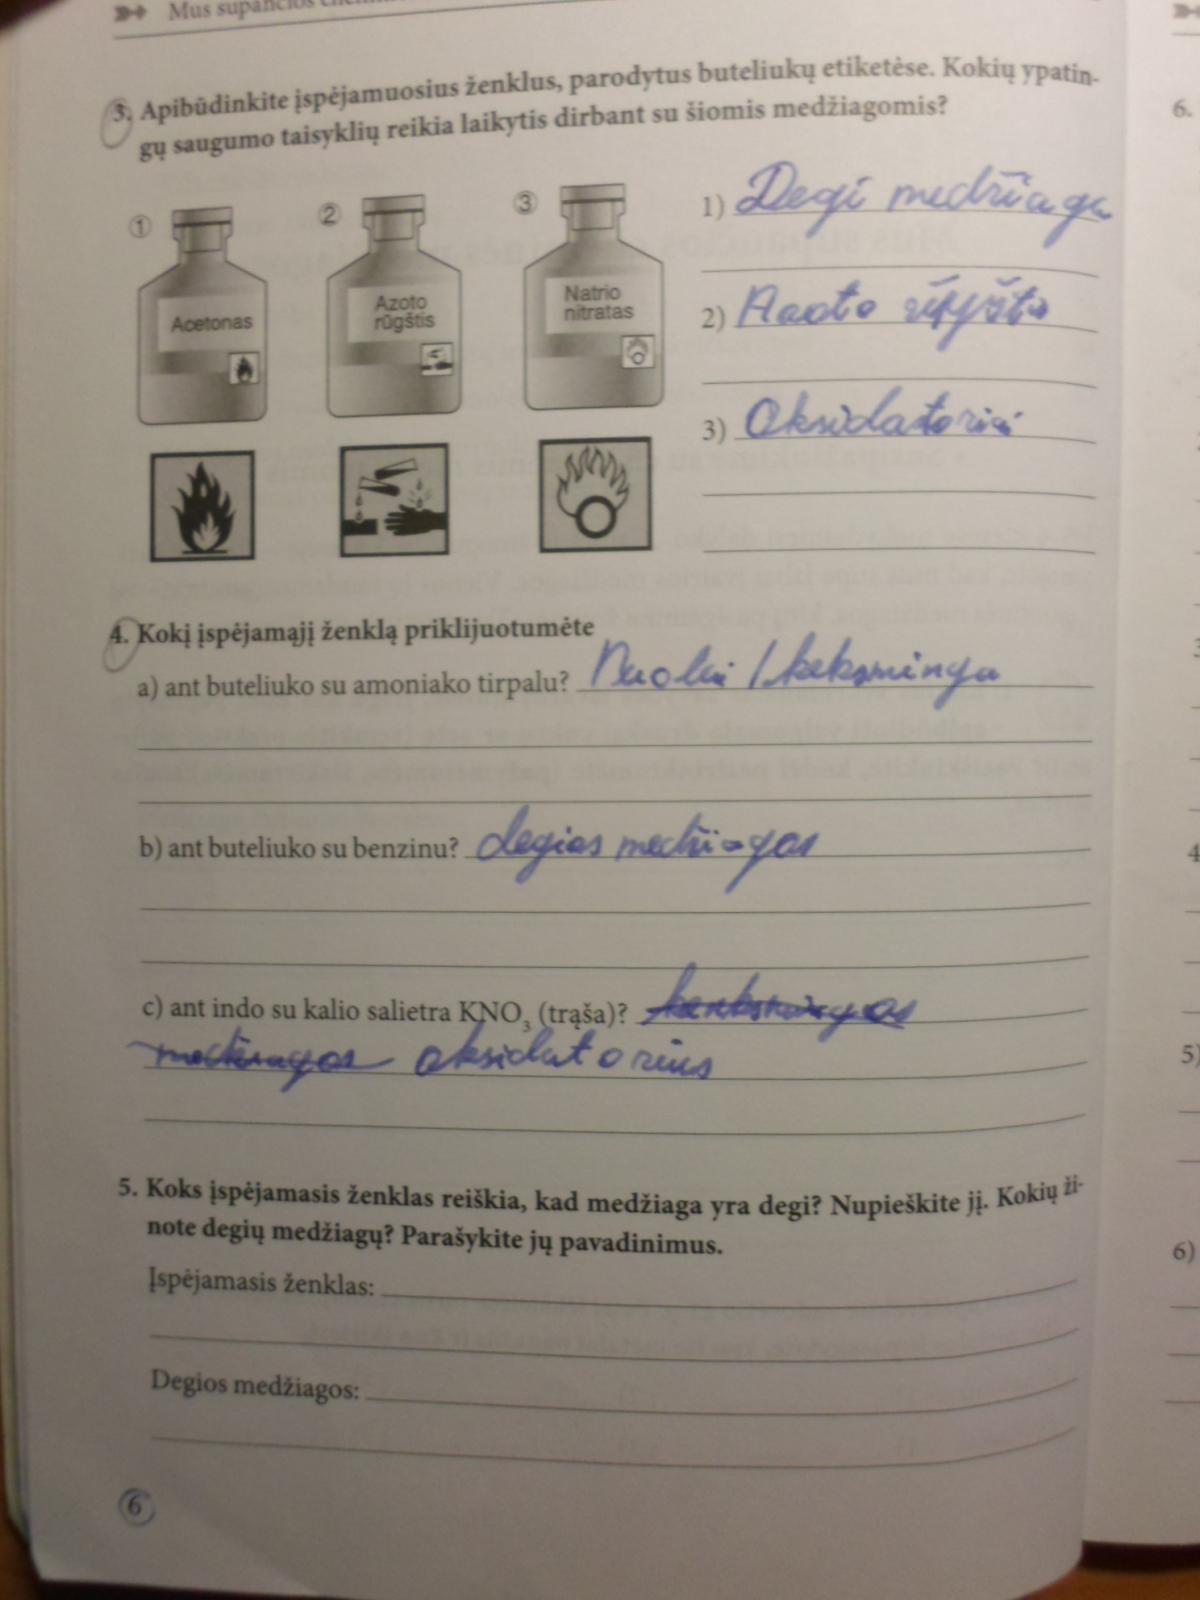 Mus supančios
3. Apibūdinkite įspėjamuosius ženklus, parodytus buteliukų etiketėse. Kokių ypatin-
gų saugumo taisyklių reikia laikytis dirbant su šiomis medžiagomis?
1
2
3
Acetonas
Azoto
rūgštis
Natrio
nitratas
1) Degi medžiaga
2)
3) Oksidatoriai
4. Kokį įspėjamąjį ženklą priklijuotumėte
a) ant buteliuko su amoniako tirpalu?
b) ant buteliuko su benzinu? degios medžiagos
c) ant indo su kalio salietra KNO3 (trąša)? kenksmingos
medžiagos oksidatorius
5. Koks įspėjamasis ženklas reiškia, kad medžiaga yra degi? Nupieškite jį. Kokių ži-
note degių medžiagų? Parašykite jų pavadinimus.
Įspėjamasis ženklas:
Degios medžiagos:
6
6.
4
5)
6)